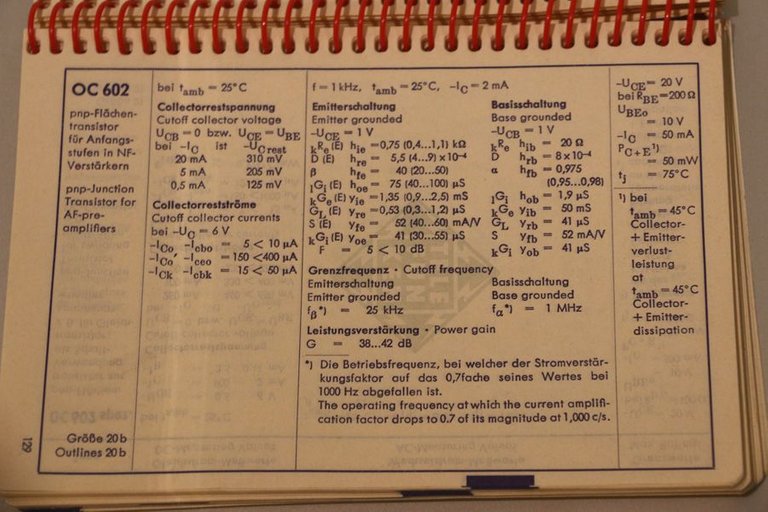 OC 602
pnp-Flächen-
transistor
für Anfangs-
stufen in NF-
Verstärkern
pnp-Junction
Transistor for
AF-pre-
amplifiers
Größe 20 b
Outlines 20 b
129
bei tamb = 25°C
Collectorrestspannung
Cutoff collector voltage
UCB = 0 bzw. UCE = UBE
bei -IC ist -UCrest
20 mA 310 mV
5 mA 205 mV
0,5 mA 125 mV
Collectorrestströme
Cutoff collector currents
bei -UC = 6 V
-ICo -Icbo = 5 < 10 µA
-ICo' -Iceo = 150 < 400 µA
-ICk -Icbk = 15 < 50 µA
f = 1 kHz, tamb = 25°C, -IC = 2 mA
Emitterschaltung
Emitter grounded
-UCE = 1 V
kRe (E) hie = 0,75 (0,4...1,1) kΩ
D (E) hre = 5,5 (4...9) x 10-4
β hfe = 40 (20...50)
lGi (E) hoe = 75 (40...100) µS
kGe (E) yie = 1,35 (0,9...2,5) mS
GL (E) yre = 0,53 (0,3...1,2) µS
S (E) yfe = 52 (40...60) mA/V
kGi (E) yoe = 41 (30...55) µS
F = 5 < 10 dB
Basisschaltung
Base grounded
-UCB = 1 V
kRe hib = 20 Ω
D hrb = 8 x 10-4
α hfb = 0,975
(0,95...0,98)
lGi hob = 1,9 µS
kGe yib = 50 mS
GL yrb = 41 µS
S yfb = 52 mA/V
kGi yob = 41 µS
Grenzfrequenz · Cutoff frequency
Emitterschaltung
Emitter grounded
fβ*) = 25 kHz
Basisschaltung
Base grounded
fα*) = 1 MHz
Leistungsverstärkung · Power gain
G = 38...42 dB
*) Die Betriebsfrequenz, bei welcher der Stromverstär-
kungsfaktor auf das 0,7fache seines Wertes bei
1000 Hz abgefallen ist.
The operating frequency at which the current amplifi-
cation factor drops to 0.7 of its magnitude at 1,000 c/s.
-UCE = 20 V
bei RBE = 200 Ω
UBEo
= 10 V
-IC = 50 mA
PC+E 1)
= 50 mW
tj = 75°C
1) bei
tamb = 45°C
Collector-
+ Emitter-
verlust-
leistung
at
tamb = 45°C
Collector-
+ Emitter-
dissipation